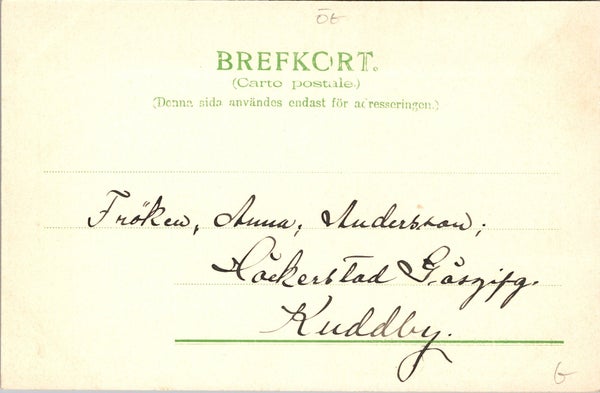 ÖG
BREFKORT.
(Carte postale.)
(Denna sida användes endast för adresseringen.)
Fröken, Anna, Andersson;
Häckerstad Gäsgifg.
Kuddby.
G